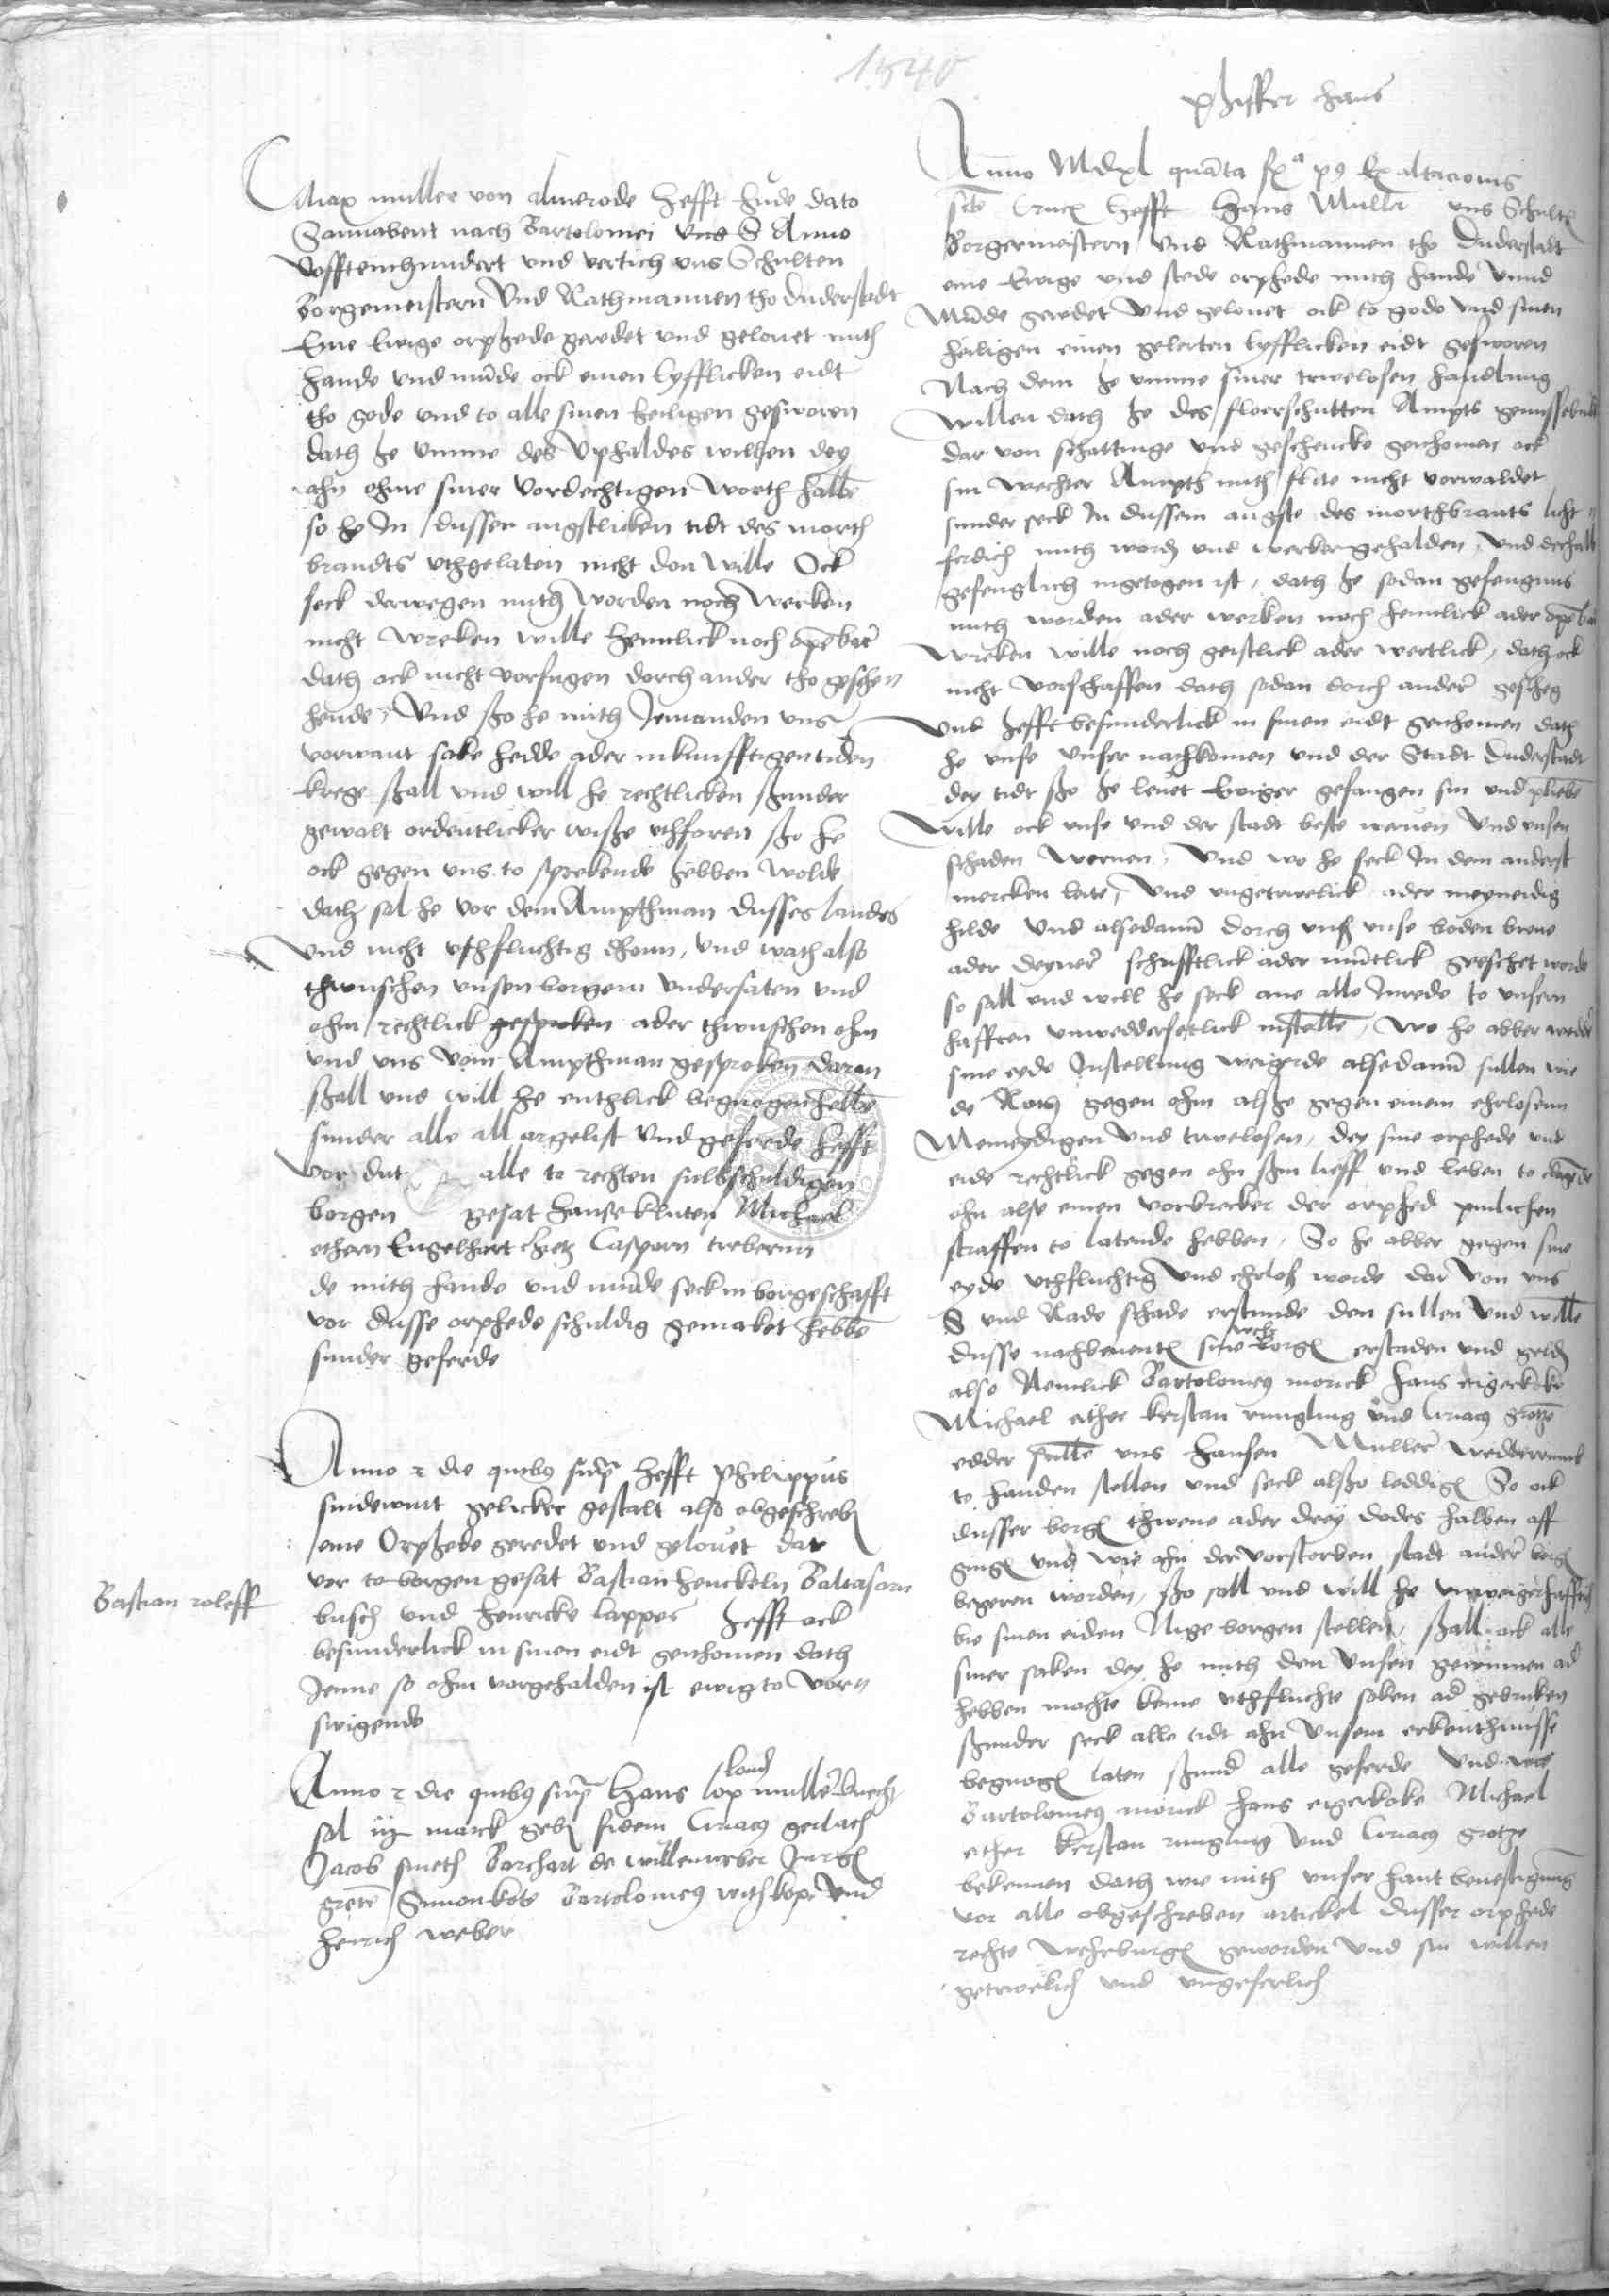 1540
Max muller von almerode hefft hude dato
Sonnabent nach Bartolomei uns S Anno
vofftenhundert und vertich uns Schulten
Borgemeistern Und Rathmannen tho Duderstadt
Eine Ewige orphede geredet und gelouet mith
hande und munde ock einen lyfflicken eidt
tho gode und to alle sinen heiligen gesworen
dath he umme des Uphaldes willen dey
ahn ohme siner vordechtigen worth halbe
so he In dussen angstlicken tidt des morth
brandts uthgelaten nicht don wille Ock
seck derwegen mith worden noch wercken
nicht wreken wille hemlick noch openbar
dath ock nicht vorfugen dorch ander tho geschen
hende, Und sho he mith Jemanden uns
vorwant sake hedde ader inkunfftigen tiden
krege shall und will he rechtlicken shunder
gewalt ordentlicker wishe uthforen sho he
ock gegen uns to sprekende hebben wolde
dath sol he vor dem Ampthman dusses landes
Und nicht uthfluchtig dhonn, und wath also
thwuschen unsen borgern undersaten und
ohm rechtlick gesproken ader thwuschen ohm
und uns vom Ampthman gesproken daran
shall und will he enthlick begnogen hebbe
sunder alle all argelist und geferde hefft
vor dut alle to rechten sulbschuldigen
borgen gesat Hanse kluten Michael
ethern Engelhart Casparn
de mith hande und munde seck in borgeschafft
vor dusse orphede schuldig gemaket hebbe
sunder geferde
Anno et die quibus supra hefft Philippus
sindewint gelicker gestalt also obgeschreben
eine Orphede geredet und gelouet dar
vor to borgen gesat Bastian henckeln Baltasarn
Bastian roleff
busch und henricke lappes hefft ock
besunderlick in sinen eidt genhomen dath
Jenne so ohm vorgehalden ist ewig to vor
swigende
Anno et die quibus supra Hans lop muller
sol iij marck geben fidem Ciriacus gerlach
Jacob smeth Borchart de wullenweber Jurgen
grete Simon kote Bartolomeus withkop und
Heinrich weber
pheiffer hans
Anno Mdxl quarta fexa ps Exaltacionis
scte Crucis hefft Hans Muller uns Schulten
Borgermeistern Und Rathmannen tho Duderstadt
eine Ewige und stede orphede mith hande unnd
Munde geredet Und gelouet ock to gode und sinen
heiligen einen gelerten lyfflicken eidt gesworen
Nach dem he umme siner trwelosen handlung
willen dath he des floerschutten Ampts
dar von schattinge und geschencke genhomen ock
sin wechter Ampth mith flite nicht vorwaldet
sunder seck In dussem angste des morthbrants licht
ferdich mith worden und wercken gehalden, Und derhalb
gefenglich ingetogen ist, dath he sodan gefengnus
mith worden ader werken noch hemlick ader openbar
Wreken wille noch geistlick ader wertlick, dath ock
nicht vorschaffen dath sodan dorch ander gescheg
Und hefft besunderlick in sinen eidt genhomen dath
he unse unser nachkomen und der Stadt Duderstadt
dey tidt sho he leuet Ewiger gefangen sin und
Wille ock unse und der stadt beste weruen Und unsen
schaden wernen, Und wo he seck In dem anderst
mercken leite, Und ungetrwelick ader meyneidig
hilde Und alsedann dorch unss unse boden breue
ader deyner schrifftlick ader muntlick geeschet worde
so sall und will he seck ane alle Inrede to unsern
hafften unweddersetlick instelle, Wo he abber wedder
sine eyde Instellung weigerde alsedann sullen wie
de Rath gegen ohm alshe gegen einem ehrlosenn
Meineydigen Und trwelosen, dey sine orphede und
eide rechtlick gegen ohn shin lieff und leben to clagende
ohn alse einen vorbrecker der orphed pinlichen
straffen to latende hebben, So he abber gegen sine
eyde uthfluchtig Und ehrloss worde dar von uns
S und Rade schade erstunde den sullen Und wille
dusse nachbenenten sine borgen erstaden und gelden
also Nemlick Bartolomeus morick Hans eigerkoke
Michael ether kerstan rungling und Ciriacus grotze
edder sulle uns Hansen Muller wedderumb
to handen stellen und seck alsho leddigen So ock
dusser borgen thwene ader drey dodes halben aff
gingen und wie ahn der vorstorben stadt ander borgen
begeren worden, sho soll und will he
bie sinen eiden Nige borgen stellen, shall ock alle
siner saken dey he mith den Unsen gewunnen ader
hebben mochte keine uthfluchte soken ader gebruken
shunder seck alle tidt ahn Unsem erkenthnusse
begnogen laten shunder alle geferde Und wie
Bartolomeus morick Hans eigerkoke Michael
ether kerstan rungling Und Ciriacus grotze
bekennen dath wie mith unser hant beuestigung
vor alle obgeschreben artickel dusser orphede
rechte geworden Und sin willen
getrwelich und ungeferlich